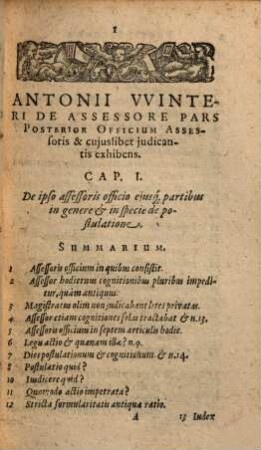 1
ANTONII VVINTE-
RI DE ASSESSORE PARS
POSTERIOR OFFICIUM ASSES-
soris & cujuslibet judican-
tis exhibens.
CAP. I.
De ipso assessoris officio ejusq; partibus
in genere & in specie de po-
stulatione.
SUMMARIUM.
1 Assessoris officium in quibus consistit.
2 Assessor hodiernus cognitionibus pluribus impedi-
tur, quàm antiquus.
3 Magistratus olim non judicabant lites privatas.
4 Assessor etiam cognitiones solus tractabat & n. 13.
5 Assessoris officium in septem articulis hodie.
6 Legis actio & quænam illa? n. 9.
7 Dies postulationum & cognitionum & n. 14.
8 Postulatio quid?
10 Iudicere quid?
11 Quomodo actio impetrata?
12 Stricta formularitatis antiquæ ratio.
A 13 Index